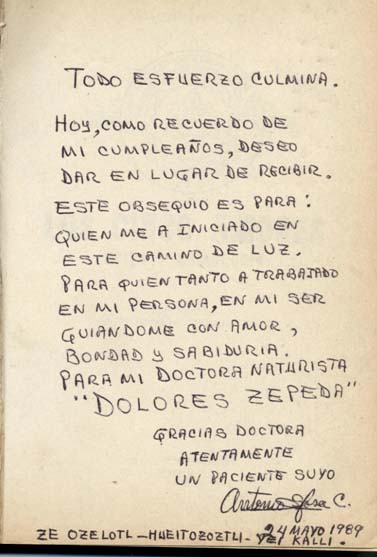 TODO ESFUERZO CULMINA.
HOY, COMO RECUERDO DE
MI CUMPLEAÑOS, DESEO
DAR EN LUGAR DE RECIBIR.
ESTE OBSEQUIO ES PARA:
QUIEN ME A INICIADO EN
ESTE CAMINO DE LUZ.
PARA QUIEN TANTO A TRABAJADO
EN MI PERSONA, EN MI SER
GUIANDOME CON AMOR,
BONDAD Y SABIDURIA.
PARA MI DOCTORA NATURISTA
"DOLORES ZEPEDA"
GRACIAS DOCTORA
ATENTAMENTE
UN PACIENTE SUYO
Antonio Sosa C.
24 MAYO 1989
ZE OZELOTL - HUEITOZOZTLI - KALLI.